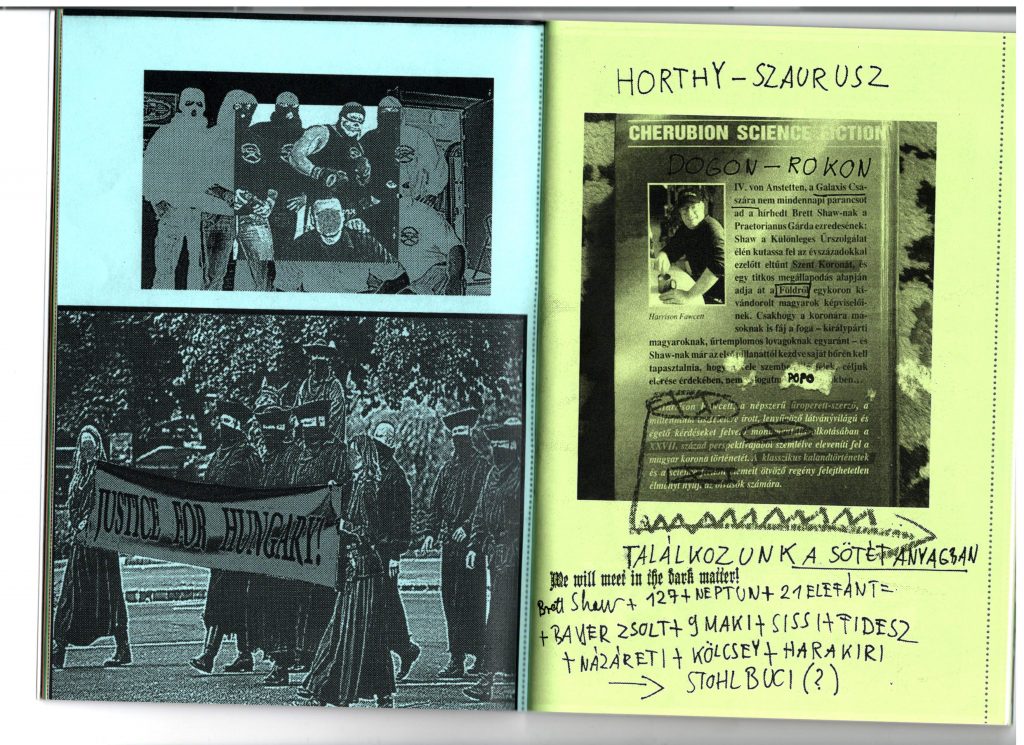 JUSTICE FOR HUNGARY!
HORTHY-SZAURUSZ
CHERUBION SCIENCE FICTION
DOGON-ROKON
IV. von Anstetten, a Galaxis Csá-
szára nem mindennapi parancsot
ad a hírhedt Brett Shaw-nak a
Praetorianus Gárda ezredesének:
Shaw a Különleges Űrszolgálat
élén kutassa fel az évszázadokkal
ezelőtt eltűnt Szent Koronát, és
egy titkos megállapodás alapján
adja át a Földről egykoron ki-
vándorolt magyarok képviselői-
nek. Csakhogy a koronára má-
soknak is fáj a foga – királypárti
Harrison Fawcen
magyaroknak, űrtemplomos lovagoknak egyaránt – és
Shaw-nak már az első pillanattól kezdve saját bőrén kell
tapasztalnia, hogy a felek, céljuk
elérése érdekében, nem POPO
Harrison Fawcett, a népszerű űroperett-szerző, a
millennium írott, lenyűgöző látványvilágú és
égető kérdéseket alkotásában a
XXVII. század perspektívájából szemlélve eleveníti fel a
magyar korona történetét. A klasszikus kalandtörténetek
és a science fiction elemeit ötvöző regény felejthetetlen
élményt nyújt az olvasók számára.
TALÁLKOZUNK A SÖTÉT ANYAGBAN
We will meet in the dark matter!
Brett Shaw + 127 + NEPTUN + 21 ELEFÁNT =
+ BAYER ZSOLT + 9 MAKI + SISSI + FIDESZ
+ NÁZÁRETI + KÖLCSEY + HARAKIRI
→ STOHL BUCI (?)